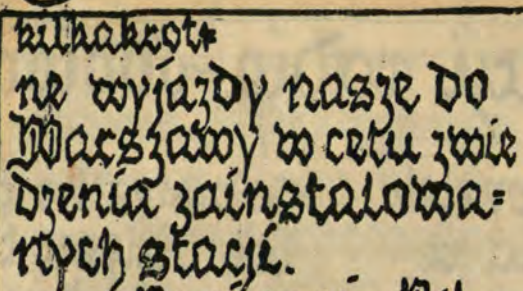 kilkakrot=
ne wyjazdy nasze do
Warszawy w celu zwie
dzenia zainstalowa=
nych stacji.